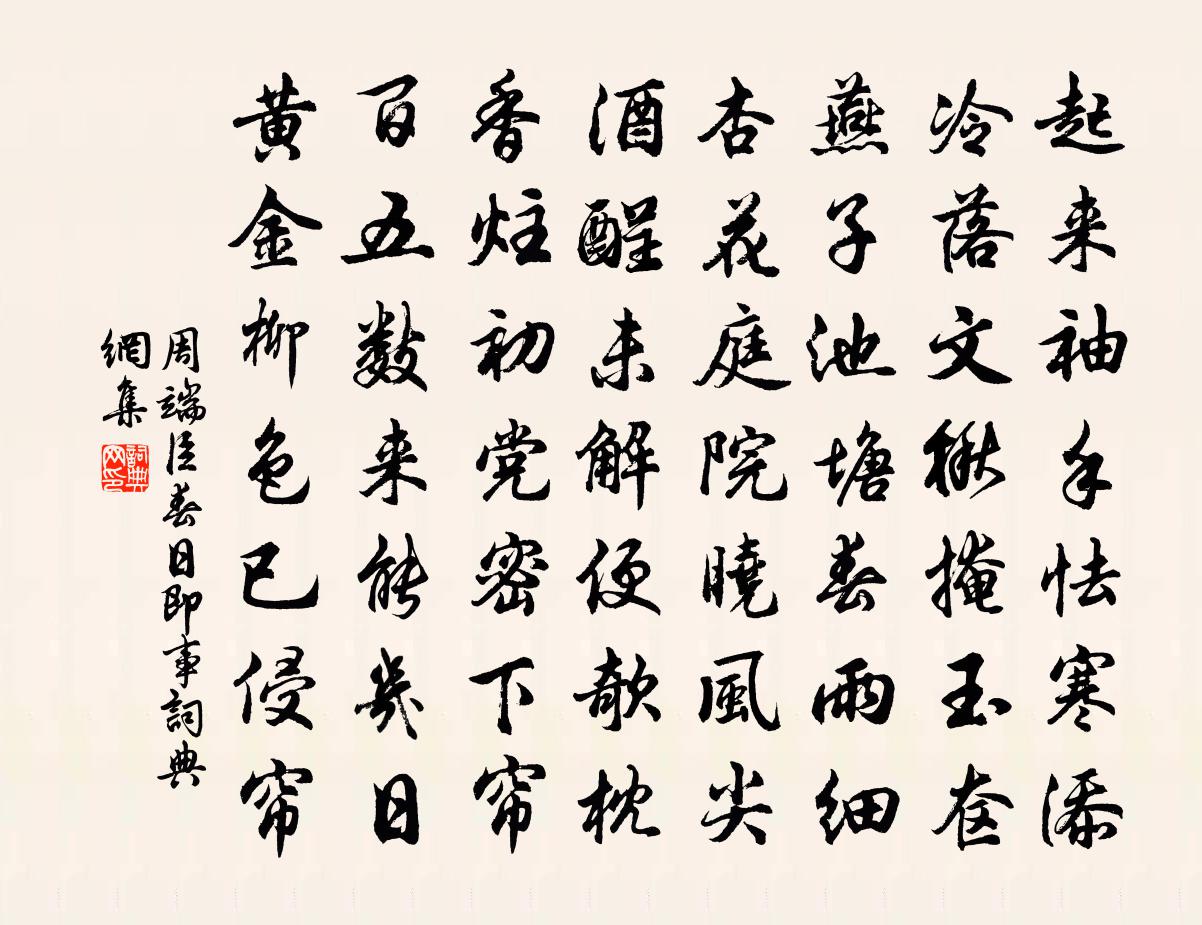 起来袖手怯寒添
冷落文楸掩玉奁
燕子池塘春雨细
杏花庭院曉風尖
酒醒未解便欹枕
香炷初党密下帘
百五数来能幾日
黄金柳色已侵帘
周端臣春日即事詞典
網集
詞典
网印